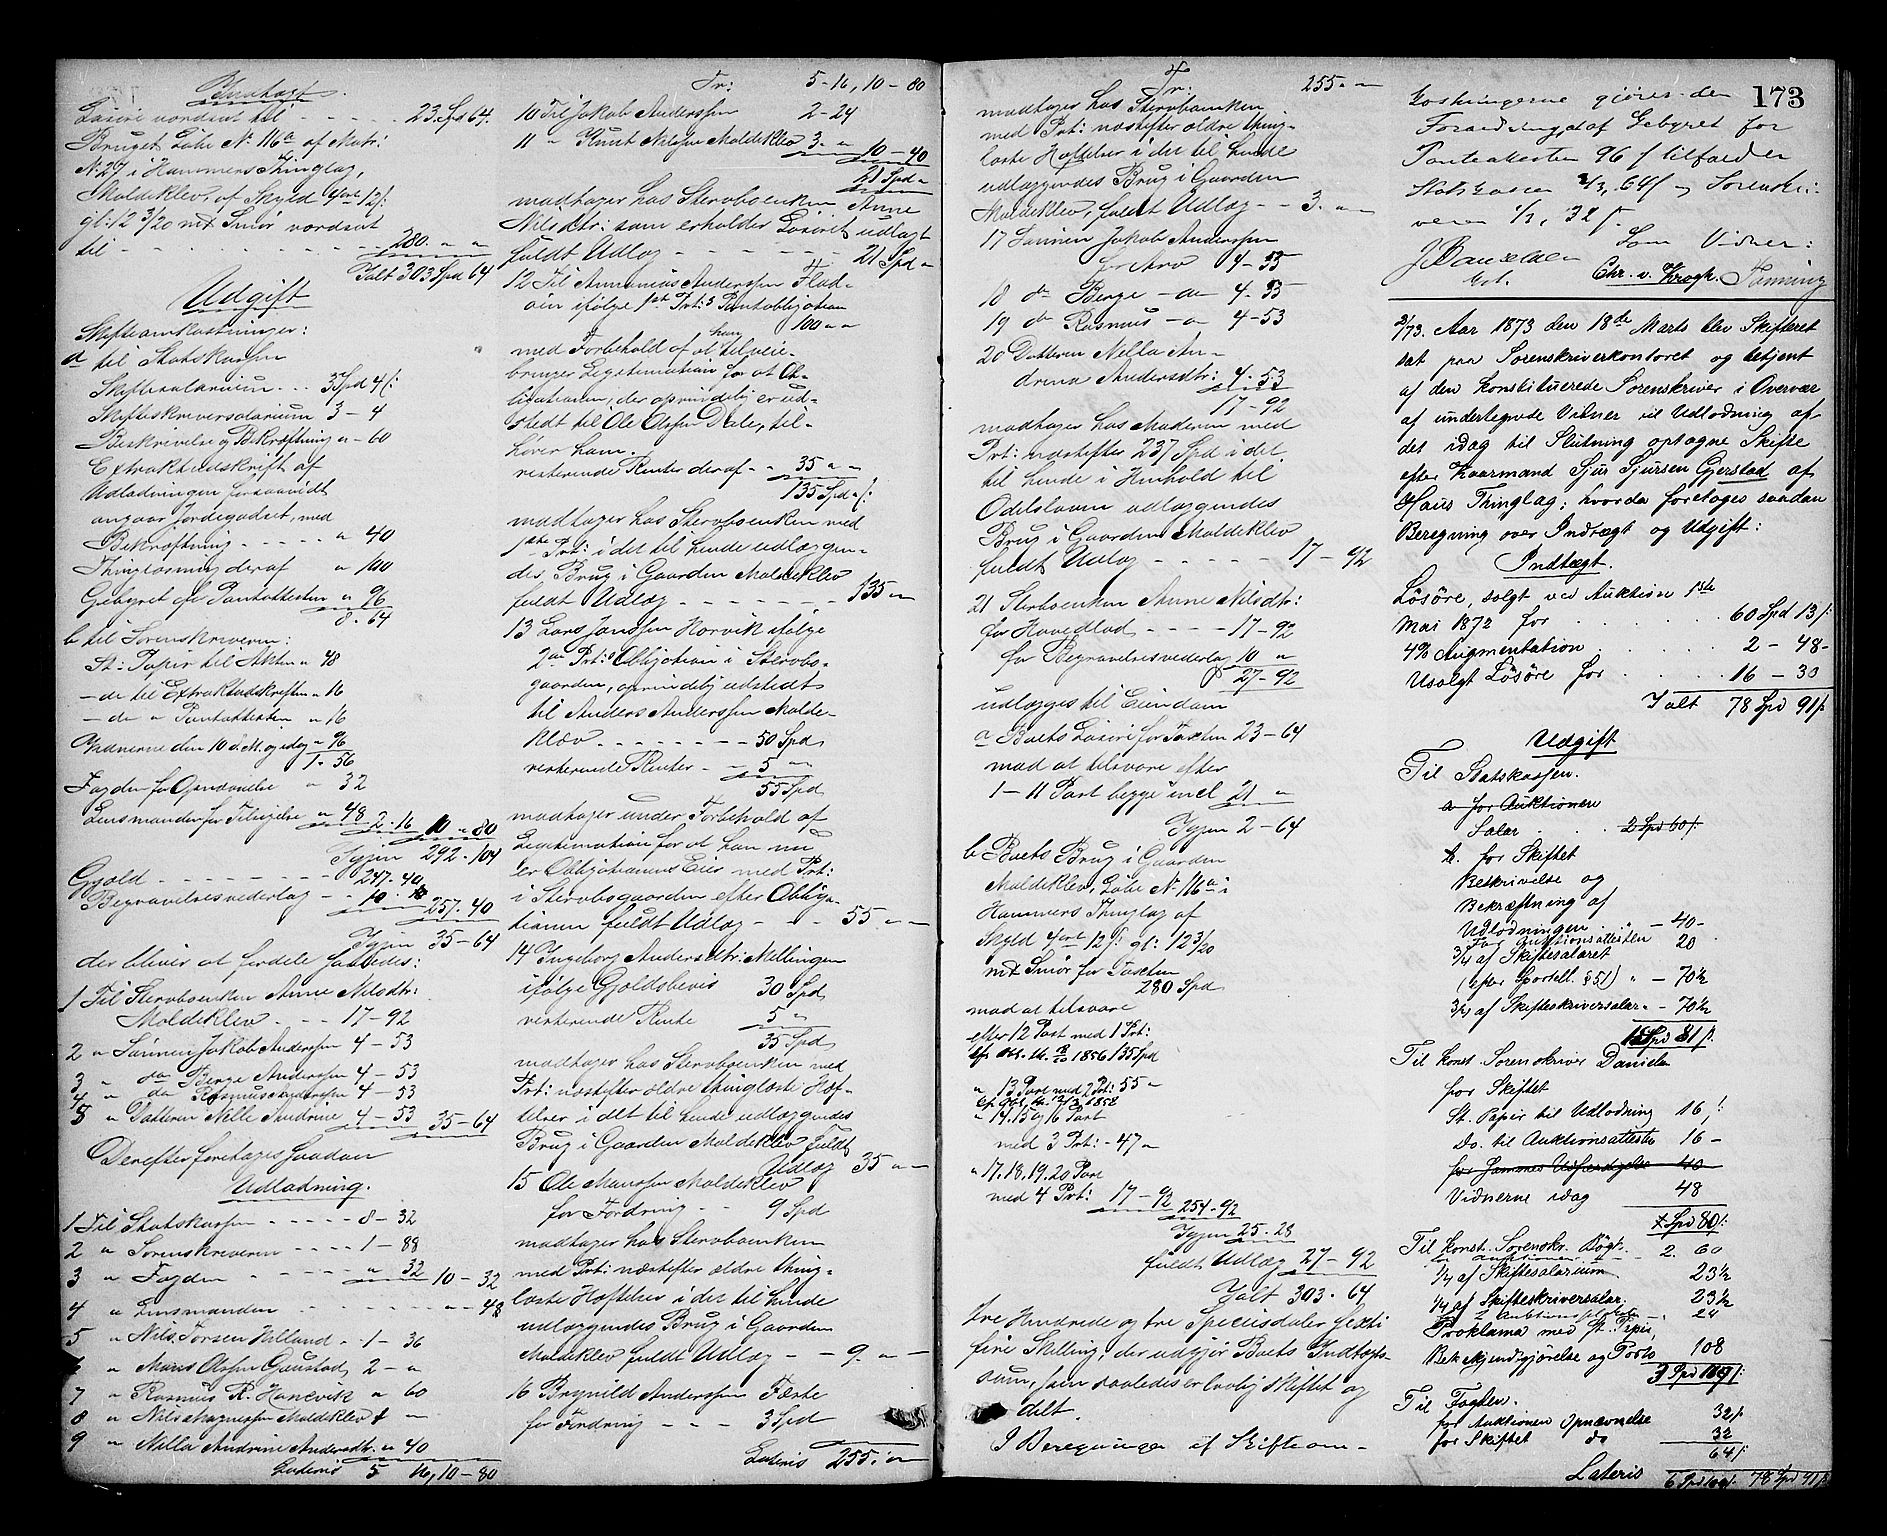 Indtægt.
Løsøre vordsat til - - - - - 23 Spd 64.
Bruget Løbe No 116a af Matr:
No 27 i Hammers Thinglag,
Moldeklev, af Skyld 4 ort 12 s:
gl: 12 3/20 mk Smør vordsat
til - - - - 280. " "
Ialt 303 Spd 64
Udgift
Skifteomkostninger:
a til Statskassen
Skiftesalarium . . 3 Spd 4 s:
Skifteskriversalarium 3 - 4
Beskrivelse og Bekræftning " - 60
Extraktudskrift af
Udlodningen forsaavidt
angaar Jordegodset, med
Bekræftning - - - - - " 40
Thinglæsning deraf " 100
Gebyret for Pantattesten " 96
8 - 64
b til Sorenskriveren:
St: Papir til Akten " 48
- do til Extraktudskriften " 16
- do " Pantattesten " 16
Vidnerne den 10 d. M. og idag " 96
1 - 56
Fogden for Opnævnelse " 32
Lensmanden for Tilsigelse " 48 2 - 16 10 " 80
Igjen 292 - 104
Gjæld - - - - - - - 247 - 40
Begravelsesvederlag - - 10 " 257 - 40
Igjen 35 - 64
der bliver at fordele saaledes:
1 Til Stervboenken Anne Nilsdtr:
Moldeklev - - - 17 - 92
2 " Sønnen Jakob Anderssen 4 - 53
3 " do Berge Anderssen 4 - 53
4 " do Rasmus Anderssen 4 - 53
5 " Datteren Nille Andrine 4 - 53 35 - 64
Derefter foretages saadan
Udlodning.
1 Til Statskassen - - - - - 8 - 32
2 " Sorenskriveren - - - - 1 - 88
3 " Fogden - - - - - " 32 10 - 32
4 " Lensmanden - - - - - " - 48
5 " Nils Torsen Hilland - - 1 - 36
" Mons Olssen Gaustad, 2 - "
7 " Rasmus R. Hanevik " 60
8 " Nils Magnessen Moldeklev 1 - "
9 " Nille Andrine Andersdtr: " 40
Lateris 5 16, 10 - 80
Tr: 5 - 16, 10 - 80
10 Til Jakob Anderssen 2 - 24
11 " Knut Nilssen Moldeklev 3. " 10 - 40
21 Spd "
modtages hos Stervboenken Anne
Nilsdtr: som erholder Løsøret udlagt
fuldt Udlæg - - - - - - 21 Spd "
12 Til Annanias Anderssen Flad-
øin ifølge 1st Prt:s Pantobligation
100 " "
med Forbehold af at han tilveie-
bringer Legitimation for at Ob-
ligationen, der oprindelig er ud-
stedt til Ole Olssen Dale, til-
hører ham.
resterende Renter deraf - - 35 " "
135 Spd " s:
modtages hos Stervboenken med
1ste Prt: i det til hende udlæggen-
des Brug i Gaarden Moldeklev
fuldt Udlæg - - - - - - - 135 "
13 Lars Janssen Horvik ifølge
2den Prt:s Obligation i Stervbo-
gaarden, oprindelig udstedt
til Anders Anderssen Molde-
klæv - - - - - - - 50 Spd
resterende Renter - - 5 " "
55 Spd
modtages under Forbehold af
Legitimation for at han nu
er Obligationens Eier med Prt:
i Stervbogaarden efter Obliga-
tionen fuldt Udlæg - - 55 " "
14 Ingeborg Andersdtr: Mellingen
ifølge Gjældsbevis 30 Spd
resterende Rente 5 "
35 Spd
modtages hos Stervboenken med
Prt: næstefter ældre thinglæste Hæf-
telser i det til hende udlæggendes
Brug i Gaarden Moldeklev Fuldt
Udlæg 35 " "
15 Ole Monssen Moldeklev
for Fordring - - 9 Spd
modtages hos Stervboenken
med Prt: næstefter ældre thing-
læste Hæftelser i det til hende
udlæggendes Brug i Gaarden
Moldeklev fuldt Udlæg - - 9. " -
16 Brynild Anderssen Fæste
for Fordring - - - 3 Spd
Lateris 255 : "
Tr: 255 " "
modtages hos Stervboenken
med Prt: næstefter ældre thing-
læste Hæftelser i det til hende
udlæggendes Brug i Gaarden
Moldeklev, fuldt Udlæg - - 3. " "
17 Sønnen Jakob Anderssen
for Arv 4 - 53
18 do Berge - do 4 - 53
19 do Rasmus - do 4 - 53
20 Datteren Nella An-
drina Andersdtr: 4 - 53
17 - 92
modtages hos Moderen med
Prt: næstefter 237 Spd i det
til hende i Henhold til
Odelsloven udlæggendes
Brug i Gaarden Moldeklev
fuldt Udlæg - - - - - 17 - 92
21 Stervboenken Anne Nilsdtr:
for Hovedlod - - - - 17 - 92
for Begravelsesvederlag 10 "
27 - 92
udlægges til Eiendom
a Boets Løsøre for Taxten 23 - 64
mod at tilsvare efter
1 - 11 Post begge incl 21 "
Igjen 2 - 64
b Boets Brug i Gaarden
Moldeklev, Løbe No 116a i
Hammers Thinglag af
Skyld 4 ort 12 s: gl: 12 3/20
mk Smør for Taxten
280 Spd
mod at tilsvare
efter 12 Post med 1 Prt:
1856 135 Spd
" 13 Post med 2 Prt: 55 "
1858
" 14. 15 og 16 Post
med 3 Prt: - 47 "
" 17. 18. 19. 20 Post
med 4 Prt: 17 - 92
254 - 92
Igjen 25 - 28
fuldt Udlæg 27 - 92
Ialt 303 - 64
tre Hundrede og tre Speciedaler sexti
fire Skilling, der udgjør Boets Indtægts-
sum, som saaledes er lovlig skiftet og
delt.
I Beregningen af Skifteom-
173
kostningerne gjøres den
Forandring at af Gebyret for
Pantattesten 96 s tilfalder
Statskassen 2/3, 64 s og Sorenskri-
veren 1/3, 32 s.
Som Vidner:
J Danielsen
cst. Chr. v. Krogh. Fanning
2/73. Aar 1873 den 18de Marts blev Skifteret
sat paa Sorenskriverkontoret og betjent
af den konstituerede Sorenskriver i Overvær
af undertegnede Vidner til Udlodning af
det idag til Slutning optagne Skifte
efter Kaarmand Sjur Sjursen Gjerstad af
Haus Thinglag; hvorda foretages saadan
Beregning over Indtægt og Udgift:
Indtægt.
Løsøre, solgt ved Auktion 1ste
Mai 1872 for . . . . 60 Spd 13 s:
4% Augmentation . . . . 2 - 48 -
Usolgt Løsøre for . . . . 16 - 30
Ialt 78 Spd 91 s
Udgift
Til Statskassen.
a for Auktionen
Salar . . . 2 Spd 60 s:
b. for Skiftet
Beskrivelse og
Bekræftning af
Udlodningen . . - 40 -
For Auktionsattesten 20
3/4 af Skiftesalæret
(efter Sportell. § 51) " - 70 1/2
3/4 af Skifteskriversalar " - 70 1/2
1 Spd 81 s.
Til konst. Sorenskriver Danielsen
for Skiftet
St. Papir til Udlodning 16 s:
Do. til Auktionsattesten 16 -
for Sammes Udfærdigelse 40
Vidnerne idag 48
Spd 80 s:
Til konst. Sorenskr. Bøgh.
for Auktionen 2. 60
1/4 af Skiftesalarium 23 1/2
1/4 af Skifteskriversalar. 23 1/2
24
Proklama med St. Papir,
Bekjendtgjørelse og Porto 108
3 Spd 119 s:
Til Fogden.
for Auktionen Opnævnelse 32 s
for Skiftet do 32
64 s:
Lateris 78 Spd 91 s